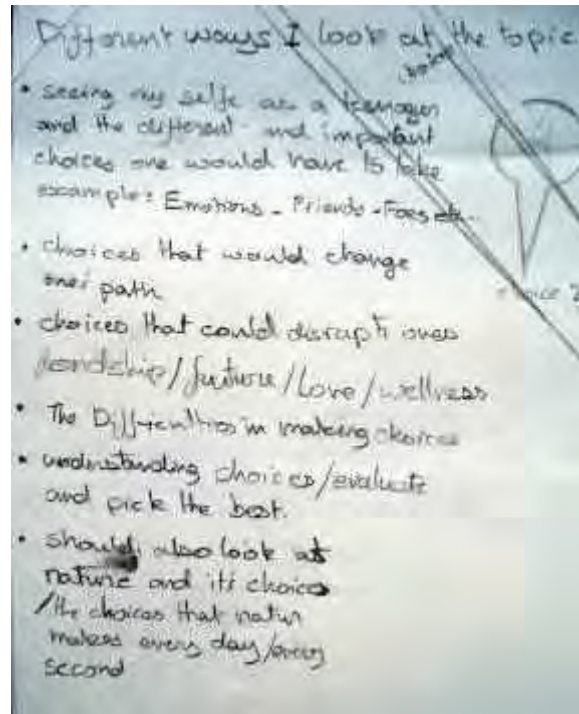 Different ways I look at the topic
(choice)
• seeing my selfe as a teenager
and the different and important
choices one would have to take
example: Emotions - Friends - Foes etc..
• choices that would change
ones path
• choices that could disrupt ones
friendship/future/Love/wellness
• The Difficulties in making choices
• understanding choices/evaluate
and pick the best.
• should also look at
nature and its choices
/the choices that natur
makes every day/every
second
choice 2